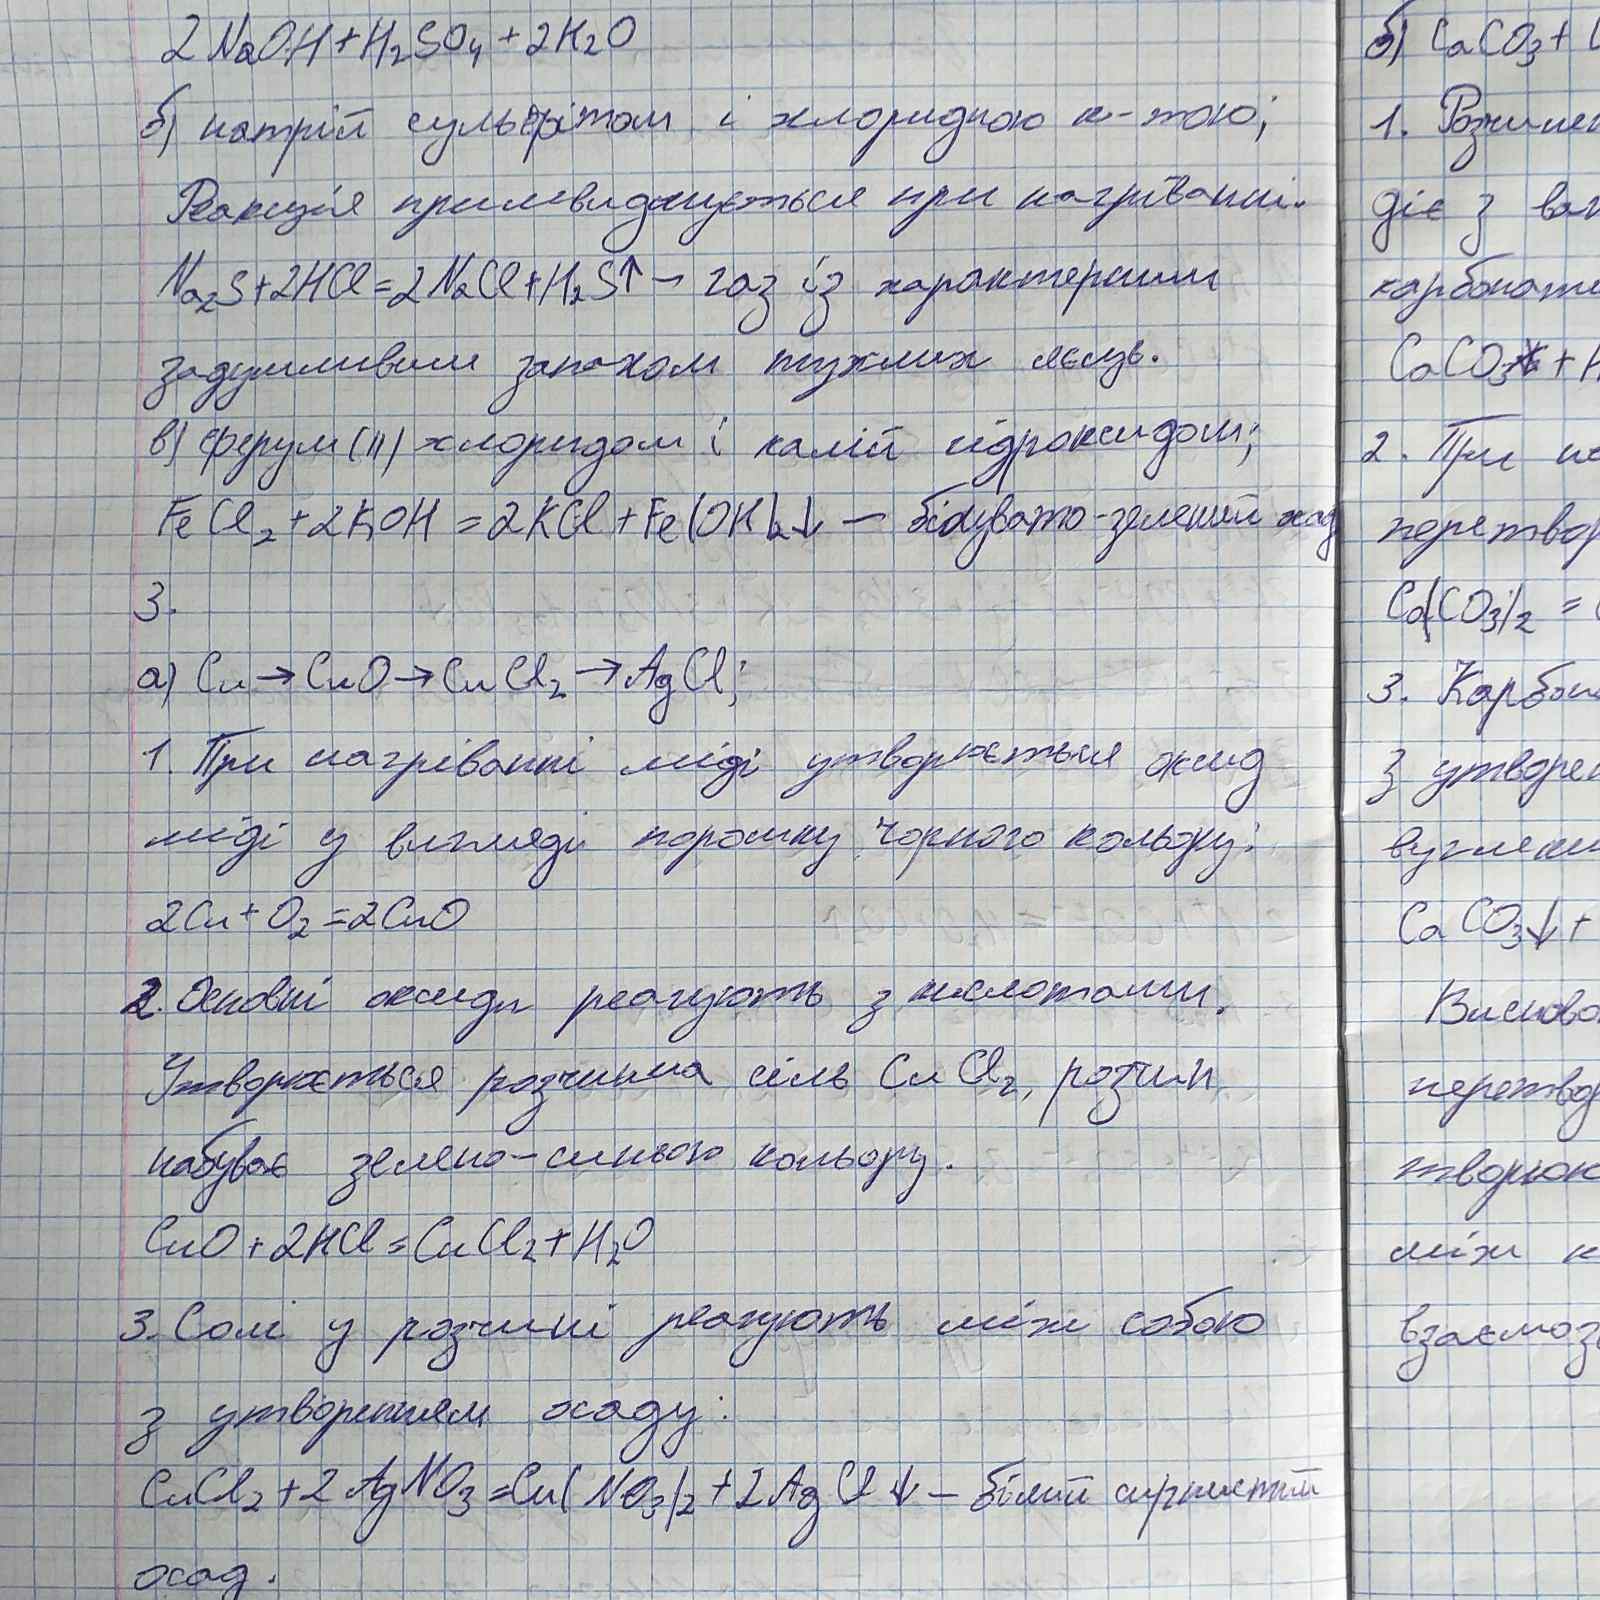 2NaOH+H₂SO₄+2H₂O
б) натрій сульфітом і хлоридною к-тою;
Реакція пришвиджується при нагріванні.
Na₂S+2HCl=2NaCl+H₂S↑ – газ із характерним
задушливим запахом тухлих яєць.
в) ферум (II) хлоридом і калій гідроксидом;
FeCl₂+2KOH=2KCl+Fe(OH)₂↓ – білувато-зелений осад
3.
а) Cu→CuO→CuCl₂→AgCl;
1. При нагріванні міді утворюється оксид
міді у вигляді порошку чорного кольору:
2Cu+O₂=2CuO
2. Основні оксиди реагують з кислотами.
Утворюється розчинна сіль CuCl₂, розчин
набуває зелено-синього кольору.
CuO+2HCl=CuCl₂+H₂O
3. Солі у розчині реагують між собою
з утворенням осаду:
CuCl₂+2AgNO₃=Cu(NO₃)₂+2AgCl↓ – білий сирнистий
осад.
б) CaCO₃+
1. Розчинен
діє з ваг
карбонате
CaCO₃ + H
2. При на
перетвор
Ca(CO₃)₂ =
3. Карбон
з утворен
вуглеки
CaCO₃↓+
Висново
перетвор
творюю
між к
взаємозв